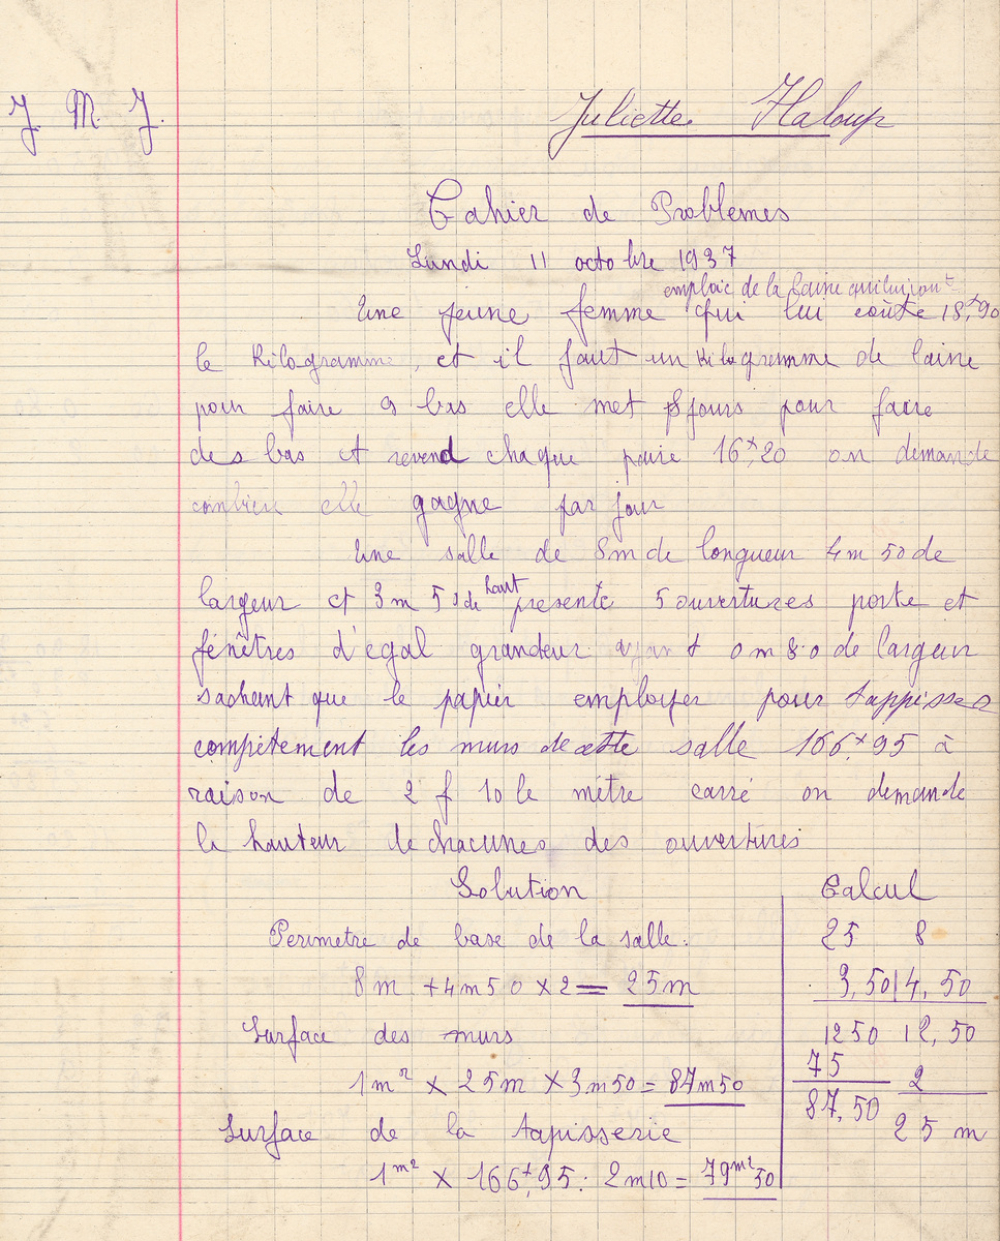 J. M. J.
Juliette Haloup
Cahier de Problemes
Lundi 11 octobre 1937
emploie de la laine qui lui
Une jeune femme qui lui coûte 18f,90
le Kilogramme, et il faut un kilogramme de laine
pour faire 9 bas elle met 8 jours pour faire
des bas et revend chaque paire 16f,20 on demande
combien elle gagne par jour
Une salle de 8m de longueur 4m 50 de
haut
largeur et 3m 50 de presente 5 ouvertures porte et
fénêtres d'egal grandeur ayant 0m80 de largeur
sachant que le papier employer pour tappisser
compètement les murs de cette salle 166f,95 à
raison de 2f 10 le mètre carré on demande
la hauteur de chacunes des ouvertures
Solution
Perimetre de base de la salle.
8m + 4m50 × 2 = 25m
Surface des murs
1m² × 25m × 3m50 = 87m50
Surface de la tapisserie
1m² × 166f,95 : 2m10 = 79m²50
Calcul
25 8
3,50 4,50
1250 12,50
75 2
87,50 25 m